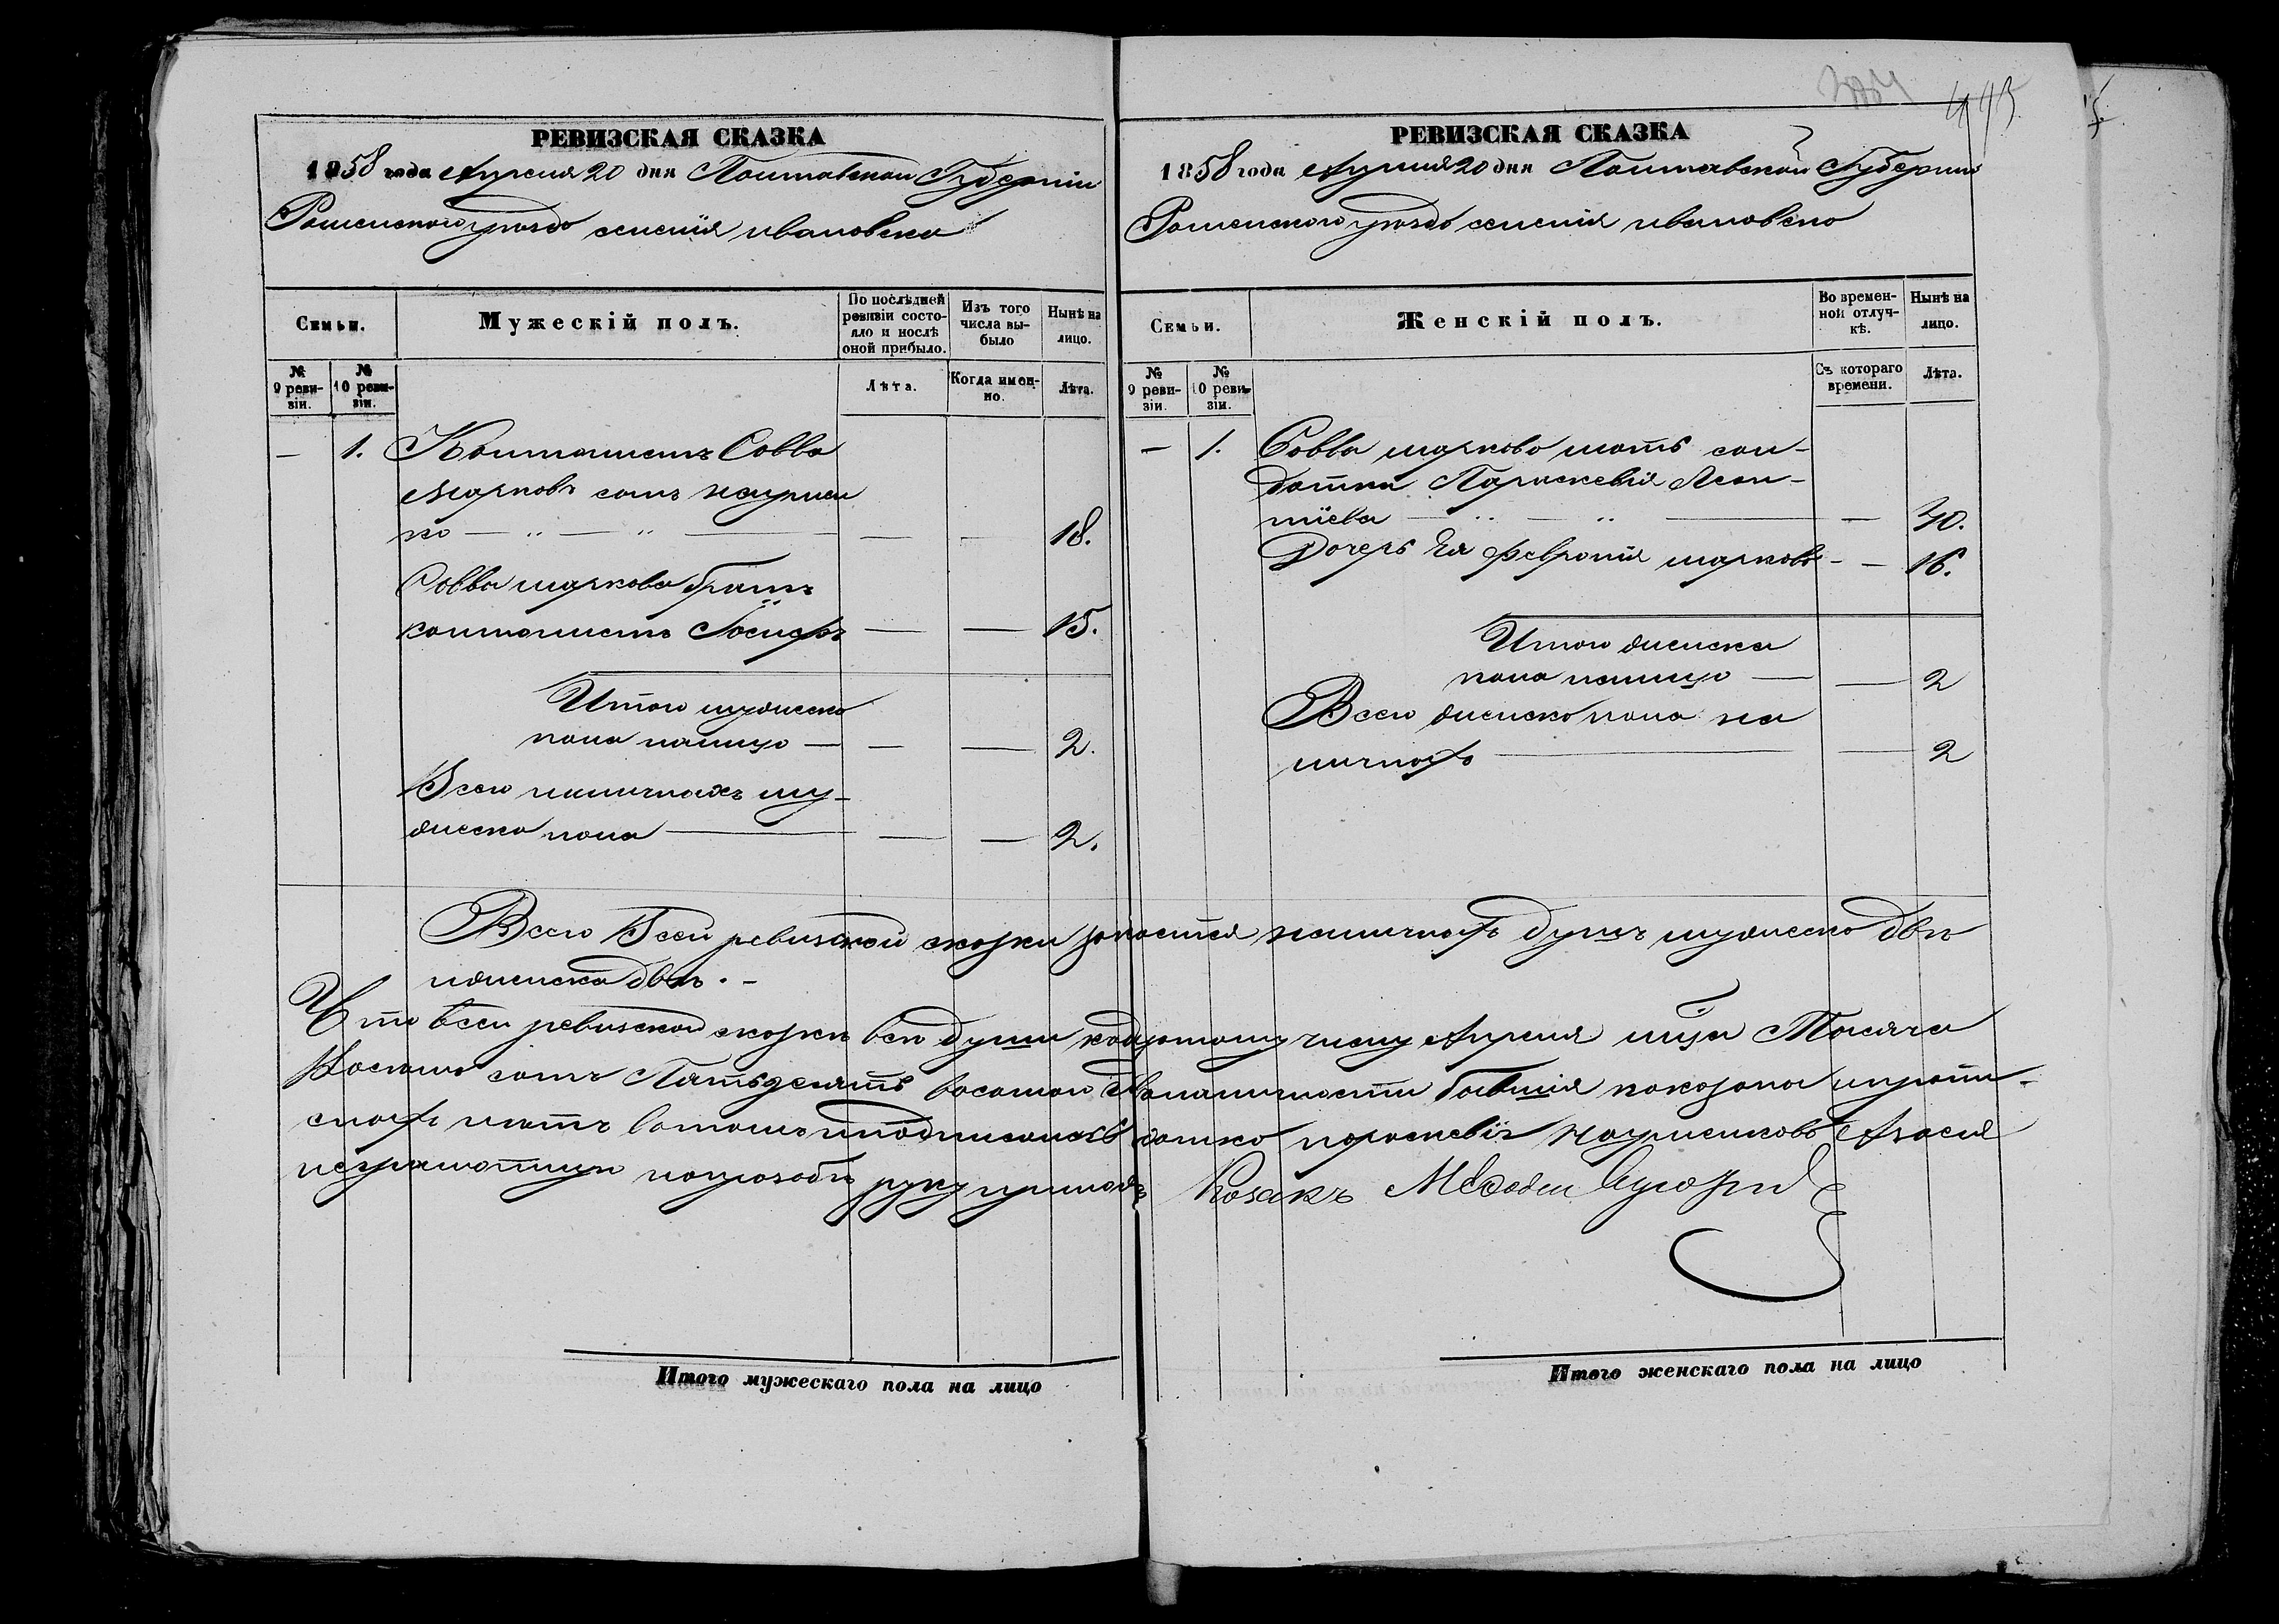 РЕВИЗСКАЯ СКАЗКА
1858 года Апреля 20 дня Полтавской Губерніи
Роменского уезда селенія ивановско
Семьи. Мужескій полъ. По послѣдней ревизіи состояло и послѣ оной прибыло. Изъ того числа выбыло Нынѣ на лицо.
№ 9 ревизіи. № 10 ревизіи. Лѣта. Когда именно. Лѣта.
— 1. Контонистъ Савва
Марковъ сынъ науmen
ко — „ — „ — — — 18.
Савва маркова братъ
контонистъ Іосифъ — — 15.
Итого мужеска
пола налицо — — — 2.
Всего наличныхъ му-
жеска пола — — — 2.
РЕВИЗСКАЯ СКАЗКА
1858 года Апреля 20 дня Полтавской Губерніи
Роменского уезда селенія ивановско
Семьи. Женскій полъ. Во временной отлучкѣ. Нынѣ на лицо.
№ 9 ревизіи. № 10 ревизіи. Съ котораго времени. Лѣта.
— 1. Савва маркова мать сол-
датка Параскевія Леон-
тіева — „ — „ — — 40.
Дочерь Ея Февронія маркова - — 16.
Итого женска
пола налицо — — 2
Всего женска пола на
личнохъ — — 2
Всего Всей ревизской сказки наличнохъ душъ мужеска две
иженска две. -
Что всей ревизской сказке все души апреля мца Тысяча
Восемь сотъ Пятьдесятъ восьмой бывшія показаны ипропи-
снохъ нетъ вотомъ иподписалась параскевія науменкова Азасия
неграмотную попрозбе руку приложилъ Козакъ
Итого мужескаго пола на лицо
Итого женскаго пола на лицо